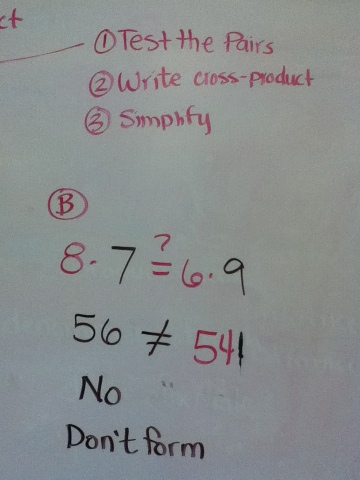 ct
① Test the Pairs
② Write cross-product
③ Simplify
Ⓑ
8·7 ≟ 6·9
56 ≠ 54
No
Don't form